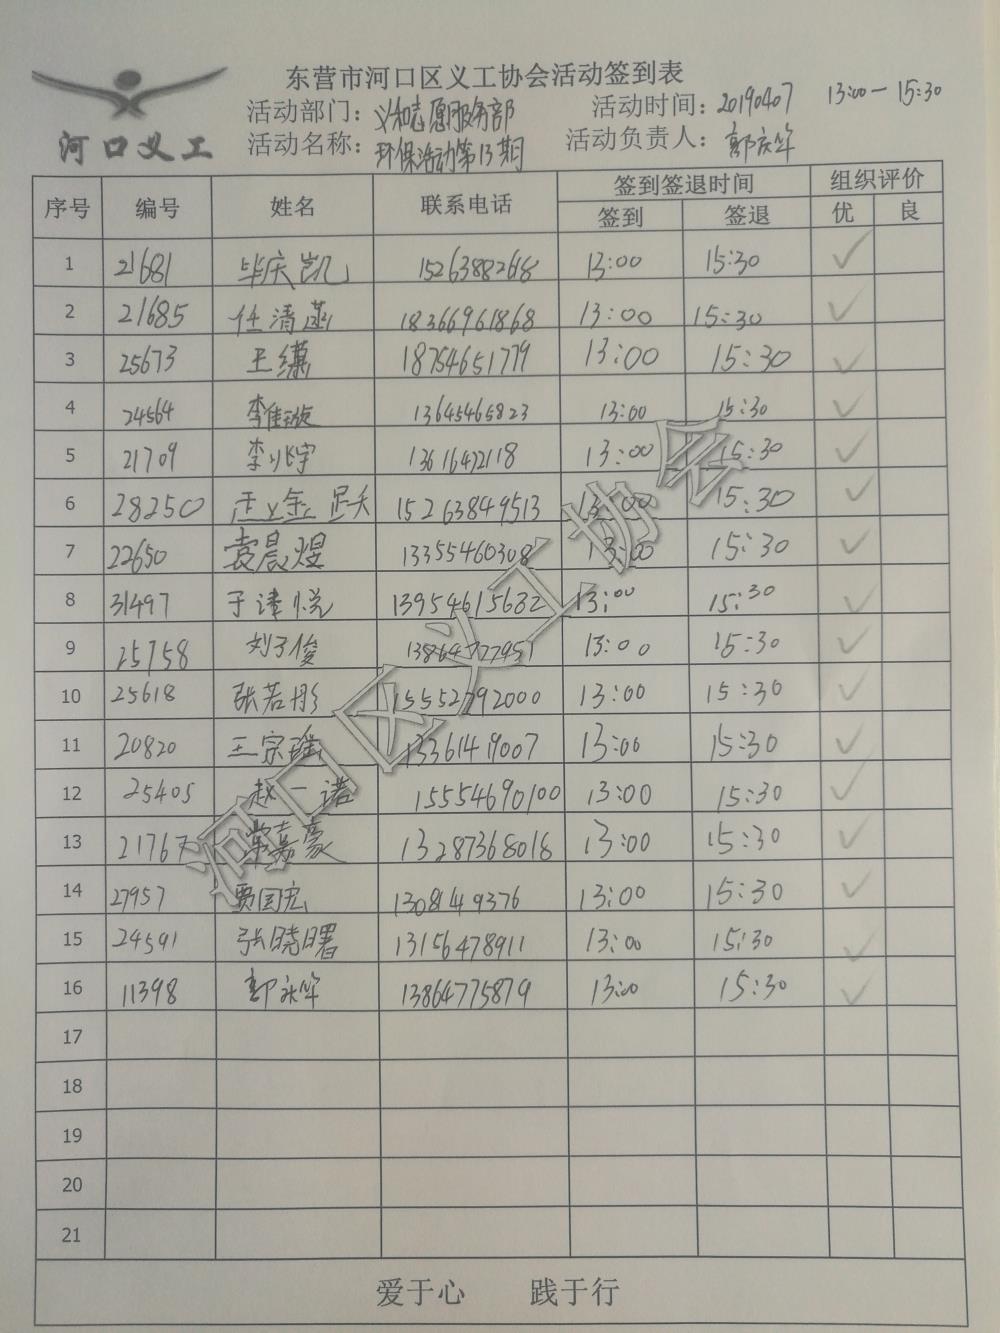 东营市河口区义工协会活动签到表
河口义工
活动部门：义和志愿服务部 活动时间：20190407 13:00-15:30
活动名称：环保活动第13期 活动负责人：郭庆华
序号 编号 姓名 联系电话 签到签退时间 组织评价
签到 签退 优 良
1 21681 毕庆凯 15263882618 13:00 15:30 ✓
2 21685 任清菡 18366961868 13:00 15:30 ✓
3 25673 王 18754651779 13:00 15:30 ✓
4 24564 李佳璇 13645465823 13:00 15:30 ✓
5 21709 李兆宇 13616472118 13:00 15:30 ✓
6 28250 15263849513 13:00 15:30 ✓
7 22650 袁晨煜 13355460308 13:00 15:30 ✓
8 31497 于津悦 13954615632 13:00 15:30 ✓
9 25758 刘子俊 13864727951 13:00 15:30 ✓
10 25618 张若彤 15552792000 13:00 15:30 ✓
11 20820 王宗瑶 13361419007 13:00 15:30 ✓
12 25405 赵一诺 15554690100 13:00 15:30 ✓
13 21767 常嘉豪 13287368018 13:00 15:30 ✓
14 27957 贾国宏 1308149376 13:00 15:30 ✓
15 24591 张晓曙 13156478911 13:00 15:30 ✓
16 11398 郭庆华 13864775879 13:00 15:30 ✓
17
18
19
20
21
爱于心 践于行
河口区义工协会